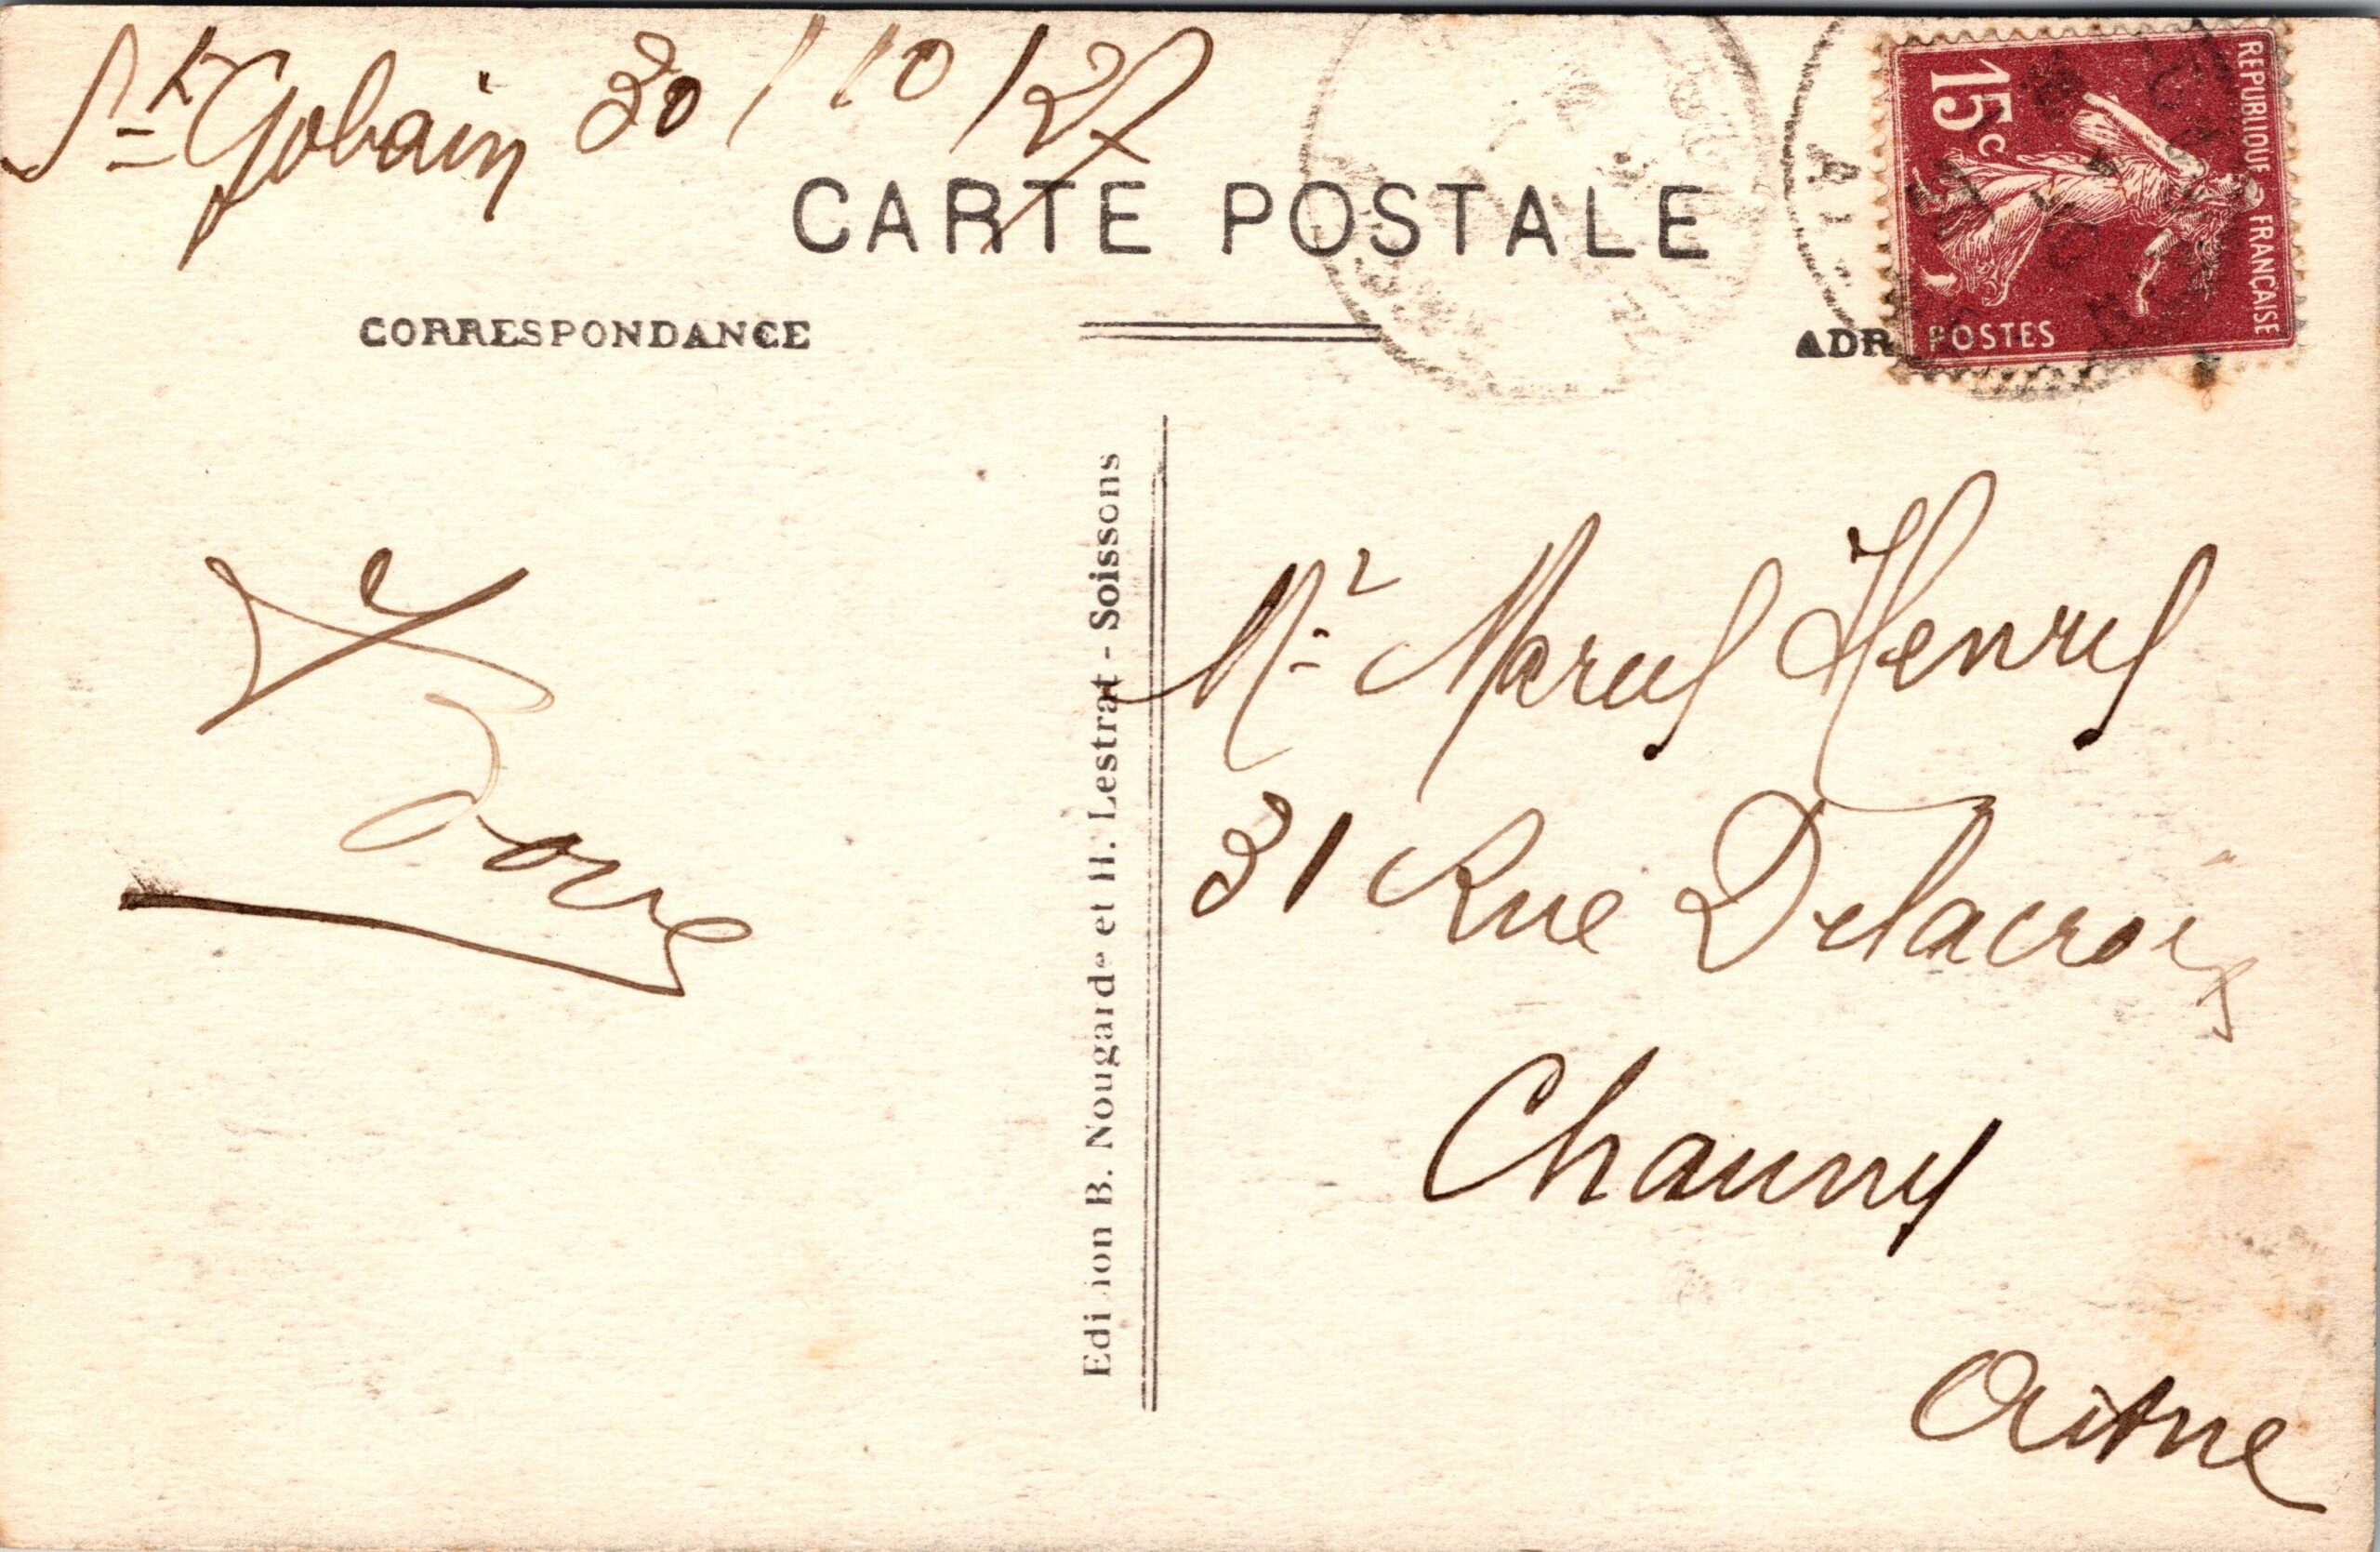 St Gobain 30/10/27
CARTE POSTALE
CORRESPONDANCE
ADR
15c
REPUBLIQUE FRANÇAISE
POSTES
Edition B. Nougarde et H. Lestrat - Soissons
Mr Marcel Henry
31 Rue Delacroix
Chauny
Aisne